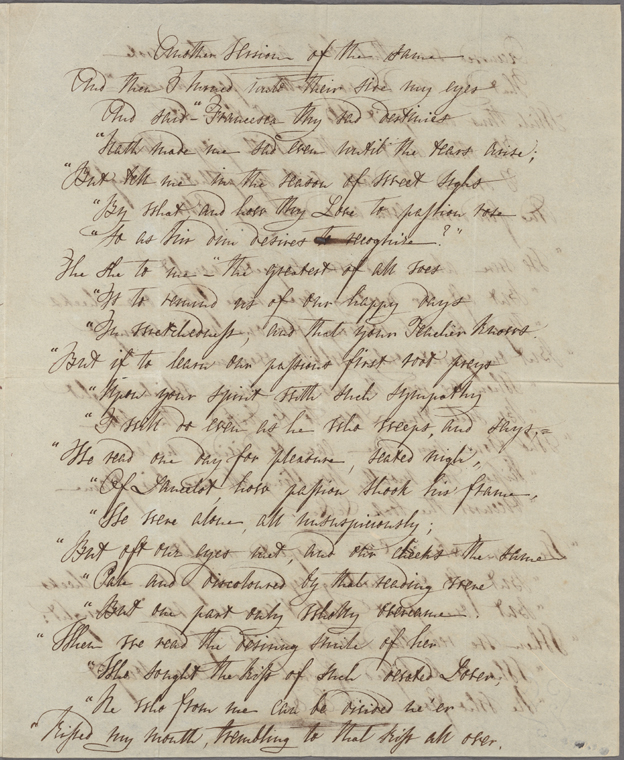 Another version of the same
And then I turned unto their side my eyes
And said - "Francesca thy sad destinies
"Hath made me sad even until the tears arise;
"But tell me in the season of sweet sighs
"By what and how thy Love to passion rose
"So as his dim desires to recognize?"
The she to me "the greatest of all woes
"Is to remind us of our happy days
"In wretchedness, and that your Teacher knows.
"But if to learn our passions first root preys
"Upon your spirit with such sympathy
"I will do even as he who weeps, and says,=
"We read one day for pleasure, seated nigh,
"Of Lancelot, how passion shook his frame,
"We were alone, all unsuspiciously;
"But oft our eyes met, and our cheeks the same
"Pale and discoloured by that reading were
"But one part only wholly overcame.
"When we read the desiring smile of her
"Who sought the kiss of such devoted Lover,
"He who from me can be divided ne'er
"Kissed my mouth, trembling to that kiss all over.